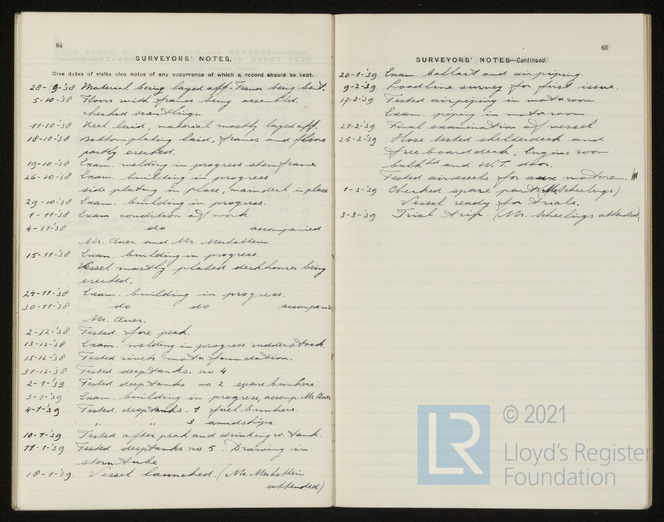 64
SURVEYORS' NOTES.
Give dates of visits also notes of any occurrence of which a record should be kept.
28-9-'38 Material being layed off. Frames being bent.
5-10-'38 Floors with frames being assembled.
checked scantlings.
11-10-'38 Keel laid, material mostly layed off.
18-10-'38 Bottom plating laid, frames and floors
partly erected.
19-10-'38 Exam. welding in progress sternframe
26-10-'38 Exam. building in progress
side plating in place, maindeck in place
29-10-'38 Exam. building in progress.
1-11-'38 Exam condition of work
4-11-'38 do accompanied
Mr. Auer and Mr.
15-11-'38 Exam. building in progress.
Vessel mostly plated deckhouses being
erected.
24-11-'38 Exam. building in progress.
30-11-'38 do do accompanied
Mr. Auer.
2-12-'38 Tested fore peak.
13-12-'38 Exam. welding in progress rudderstock
15-12-'38 Tested rivets motor foundation.
31-12-'38 Tested deeptanks. no 4
2-1-'39 Tested deeptanks no 2 spare bunkers.
3-1-'39 Exam. building in progress, accomp. Mr Auer
4-1-'39 Tested deeptanks. 1 fuel bunkers.
" " 3 amidships.
10-1-'39 Tested after peak and drinking w. tank.
11-1-'39 Tested deeptanks no 5. Drawing in
stern tube
18-1-'39 Vessel launched. (Mr.
attended)
65
SURVEYORS' NOTES—Continued.
20-1-'39 Exam. ballast and airpiping.
9-2-'39 Loadline survey for first issue.
17-2-'39 Tested airpiping in motorroom
Exam. piping in motorroom
21-2-'39 Final examination of vessel
25-2-'39 Hose tested shelterdeck and
freeboarddeck, Engine room
bulkhd and W.T. door.
Tested airvessels for aux motors.
1-3-'39 Checked spare parts (Mr Scheelings)
Vessel ready for trials.
3-3-'39 Trial trip. (Mr. Scheelings attended)
LR
© 2021
Lloyd's Register
Foundation